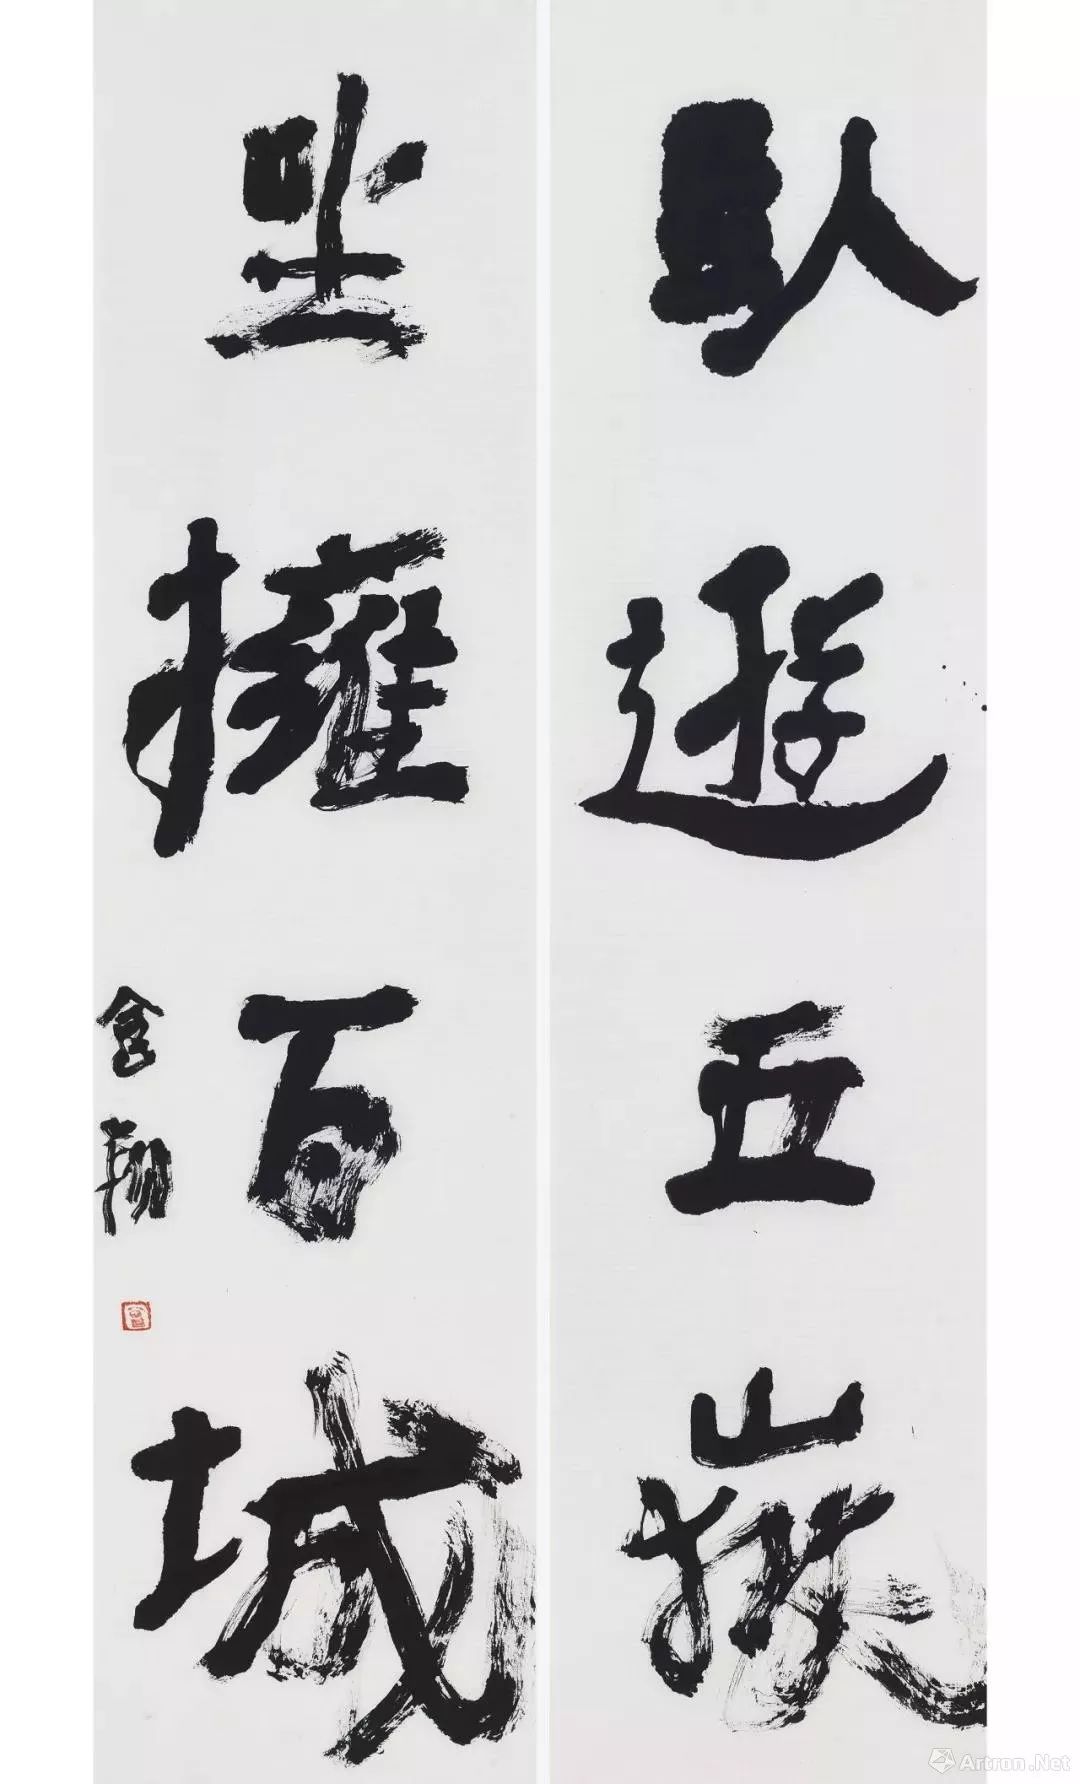 臥遊五嶽
坐擁百城
含翔
Artron.Net